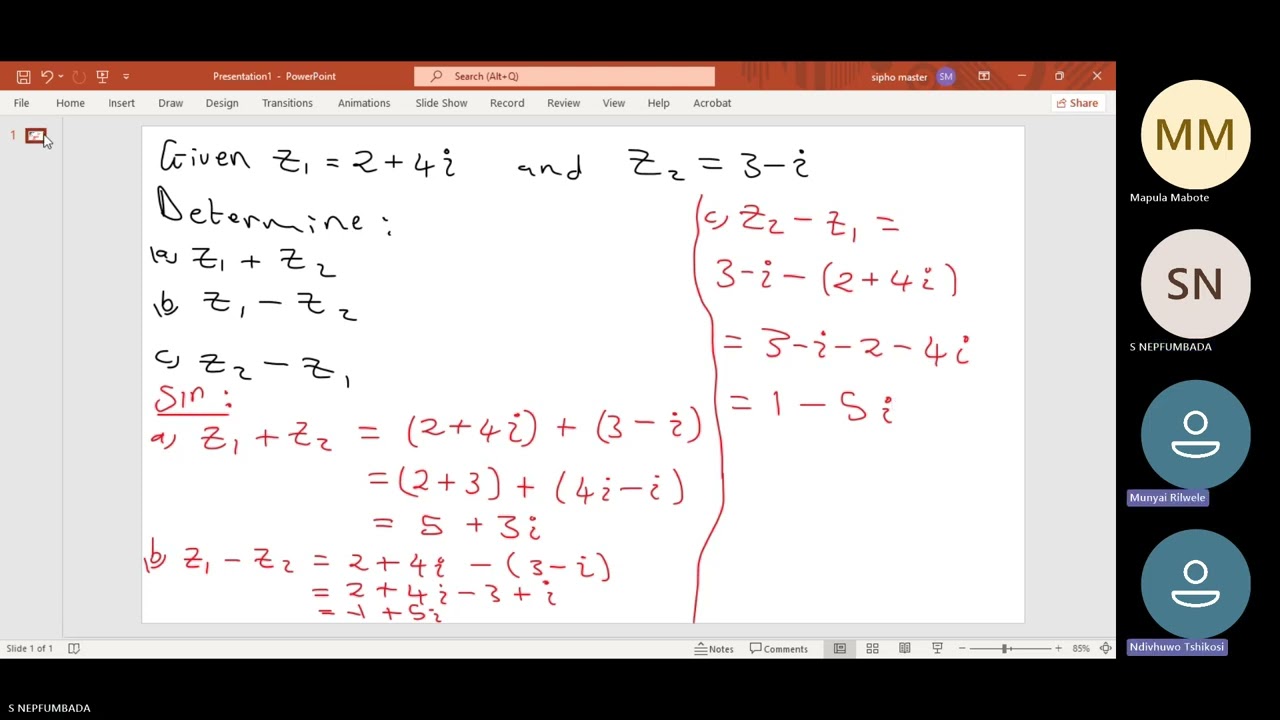 Presentation1 - PowerPoint
Search (Alt+Q)
sipho master
SM
File Home Insert Draw Design Transitions Animations Slide Show Record Review View Help Acrobat
Share
1
Given z₁ = 2 + 4i and z₂ = 3 - i
Determine :
a) z₁ + z₂
b) z₁ - z₂
c) z₂ - z₁
Sln :
a) z₁ + z₂ = (2+4i) + (3 - i)
= (2+3) + (4i - i)
= 5 + 3i
b) z₁ - z₂ = 2 + 4i - (3 - i)
= 2 + 4i - 3 + i
= -1 + 5i
c) z₂ - z₁ =
3 - i - (2 + 4i)
= 3 - i - 2 - 4i
= 1 - 5i
Slide 1 of 1
Notes
Comments
85%
MM
Mapula Mabote
SN
S NEPFUMBADA
Munyai Rilwele
Ndivhuwo Tshikosi
S NEPFUMBADA